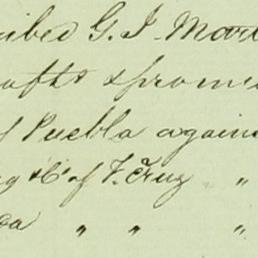 ribed G. J. Mart
rafts & promis
of Puebla agains
g & Co of V. Cruz "
ca " " "